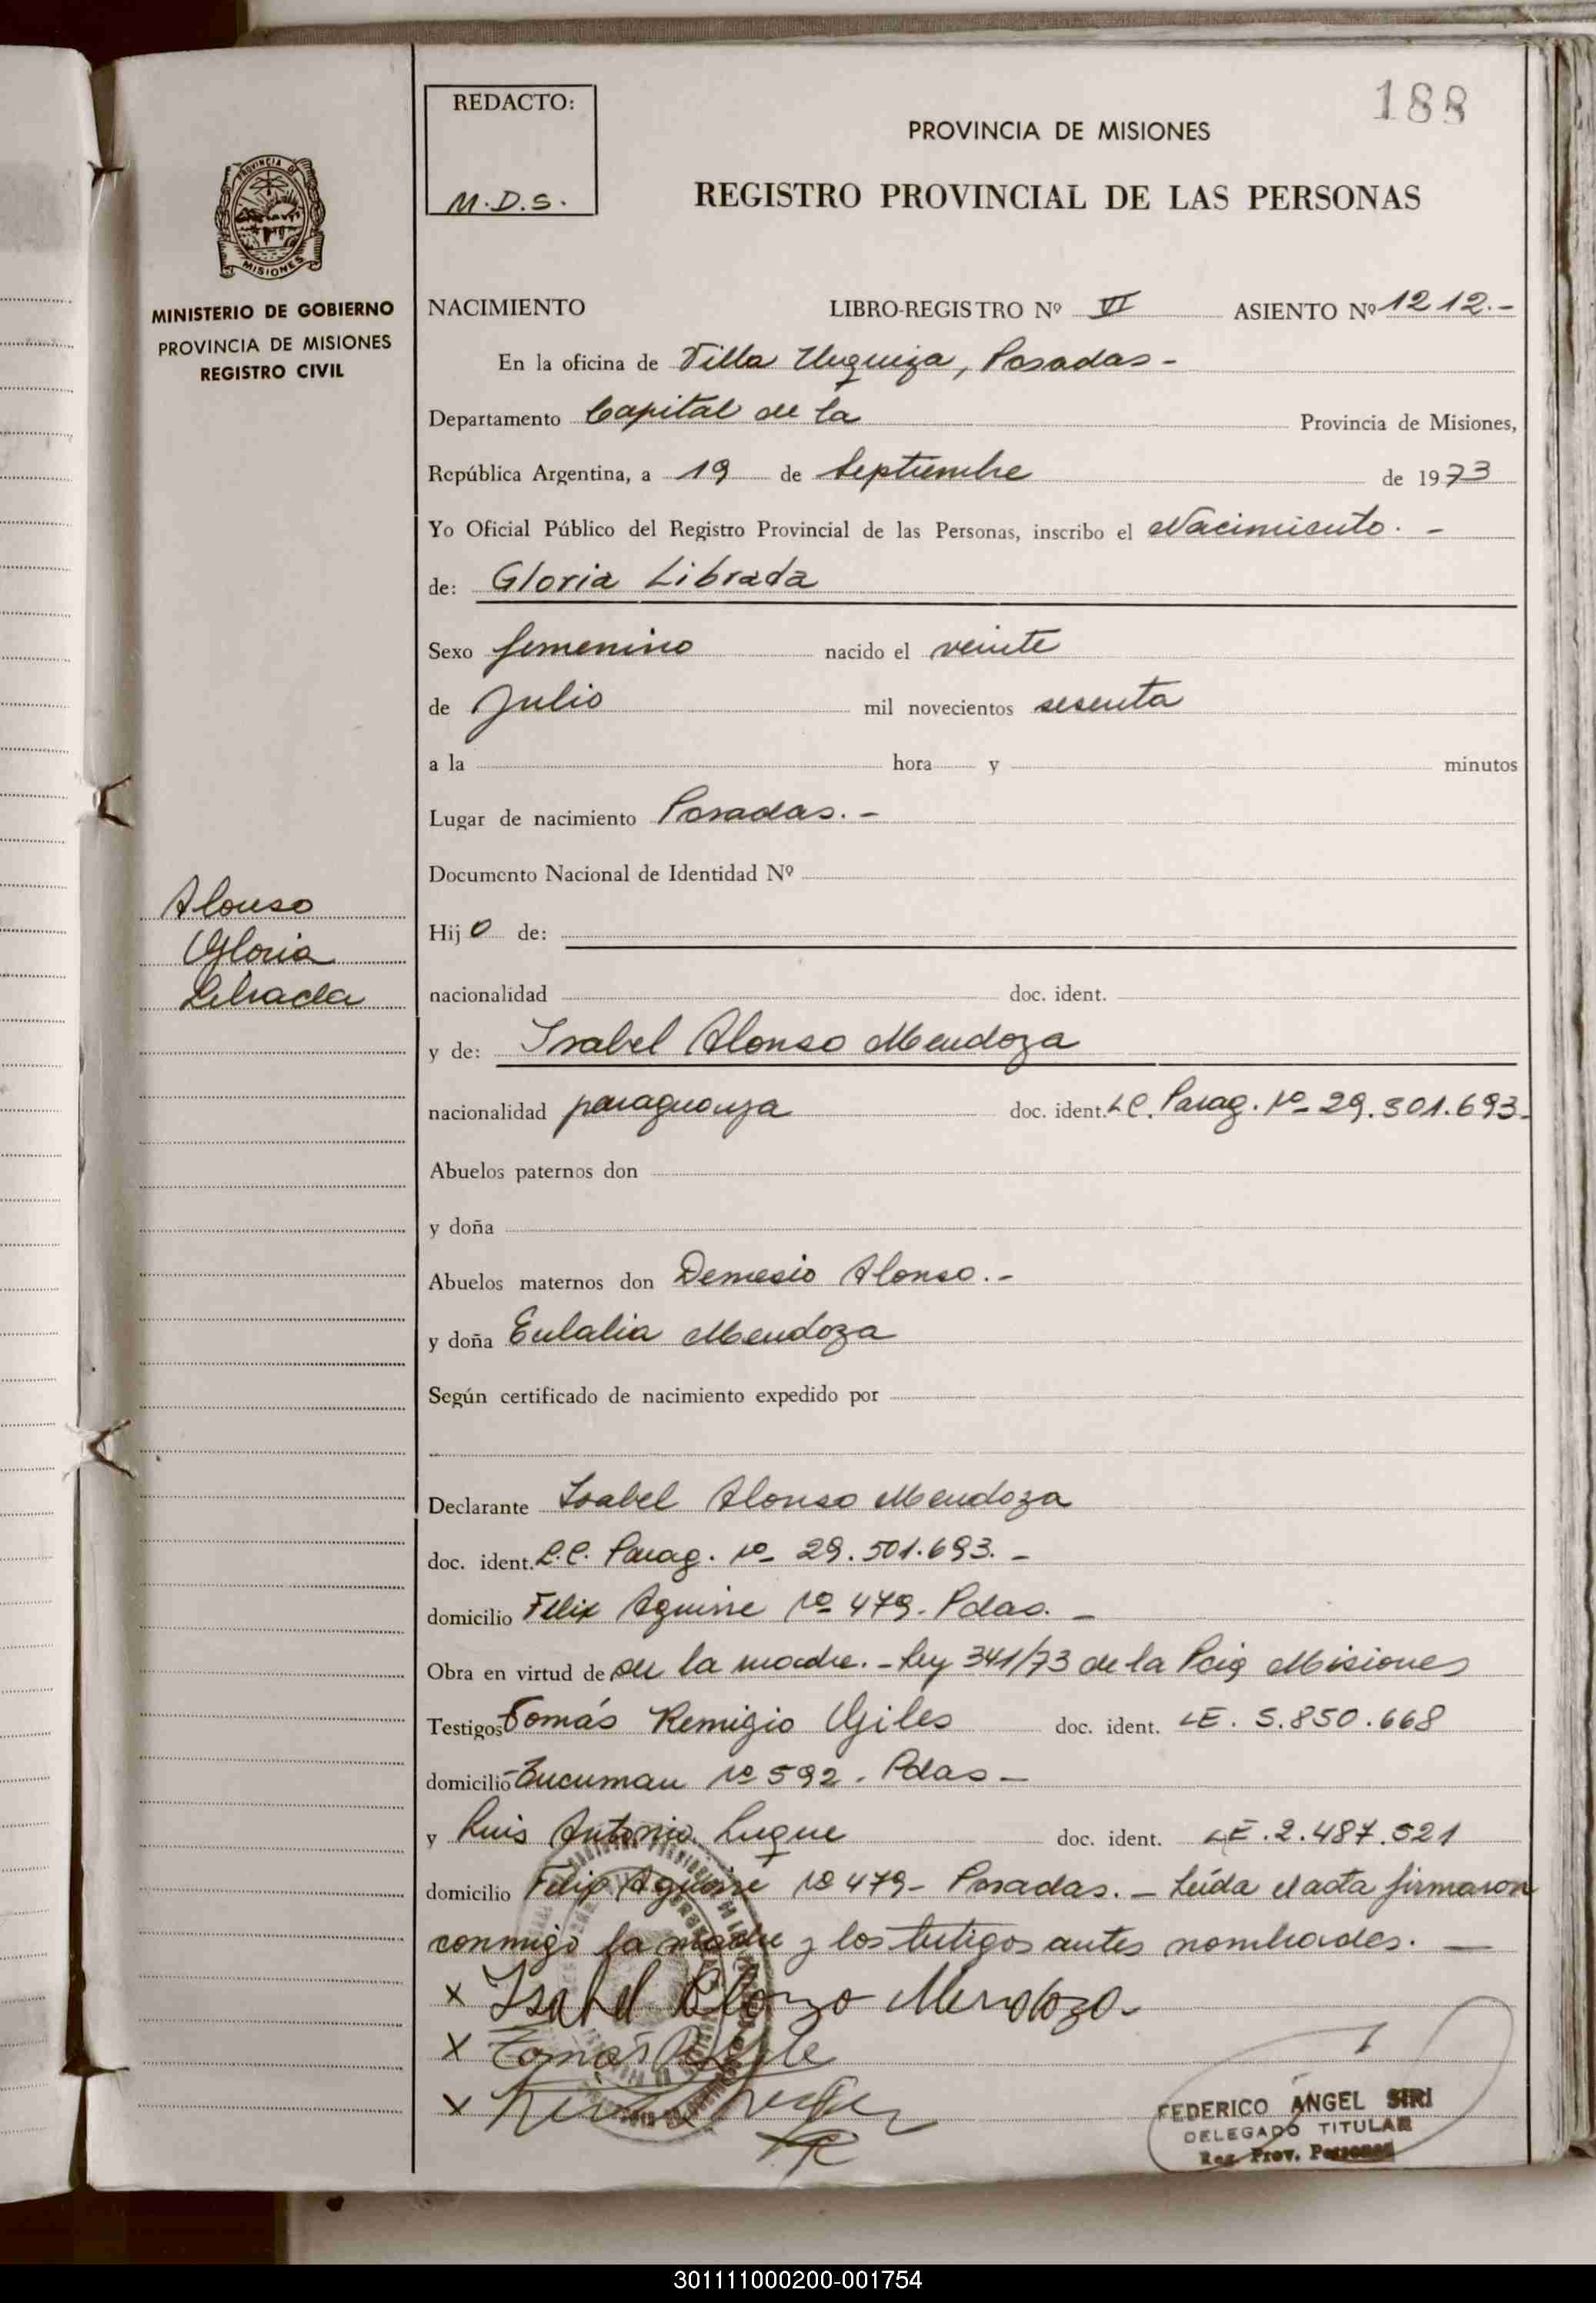 188
REDACTO:
M.D.S.
PROVINCIA DE MISIONES
REGISTRO PROVINCIAL DE LAS PERSONAS
PROVINCIA DE
MISIONES
MINISTERIO DE GOBIERNO
PROVINCIA DE MISIONES
REGISTRO CIVIL
NACIMIENTO LIBRO-REGISTRO Nº VI ASIENTO Nº 1212.-
En la oficina de Villa Urquiza, Posadas-
Departamento Capital de la Provincia de Misiones,
República Argentina, a 19 de Septiembre de 1973
Yo Oficial Público del Registro Provincial de las Personas, inscribo el Nacimiento. -
de: Gloria Librada
Sexo femenino nacido el veinte
de Julio mil novecientos sesenta
a la hora y minutos
Lugar de nacimiento Posadas. -
Documento Nacional de Identidad Nº
Alonso
Gloria
Librada
Hijo de:
nacionalidad doc. ident.
y de: Isabel Alonso Mendoza
nacionalidad paraguaya doc. ident. L.C. Parag. Nº 29.501.693-
Abuelos paternos don
y doña
Abuelos maternos don Demesio Alonso. -
y doña Eulalia Mendoza
Según certificado de nacimiento expedido por
Declarante Isabel Alonso Mendoza
doc. ident. L.C. Parag. Nº 29.501.693. -
domicilio Felix Aguirre Nº 479. Pdas. -
Obra en virtud de ser la madre. - Ley 341/73 de la Pcia Misiones
Testigos Tomás Remigio Giles doc. ident. LE. 5.850.668
domicilio Tucuman Nº 592. Pdas -
y Luis Antonio Luque doc. ident. LE. 2.487.521
domicilio Felix Aguirre Nº 479- Posadas. - Leída el acta firmaron
conmigo la madre y los testigos antes nombrados. -
x Isabel Alonzo Mendoza
x Tomás
x
FEDERICO ANGEL SIRI
DELEGADO TITULAR
Reg. Prov. Personas
301111000200-001754